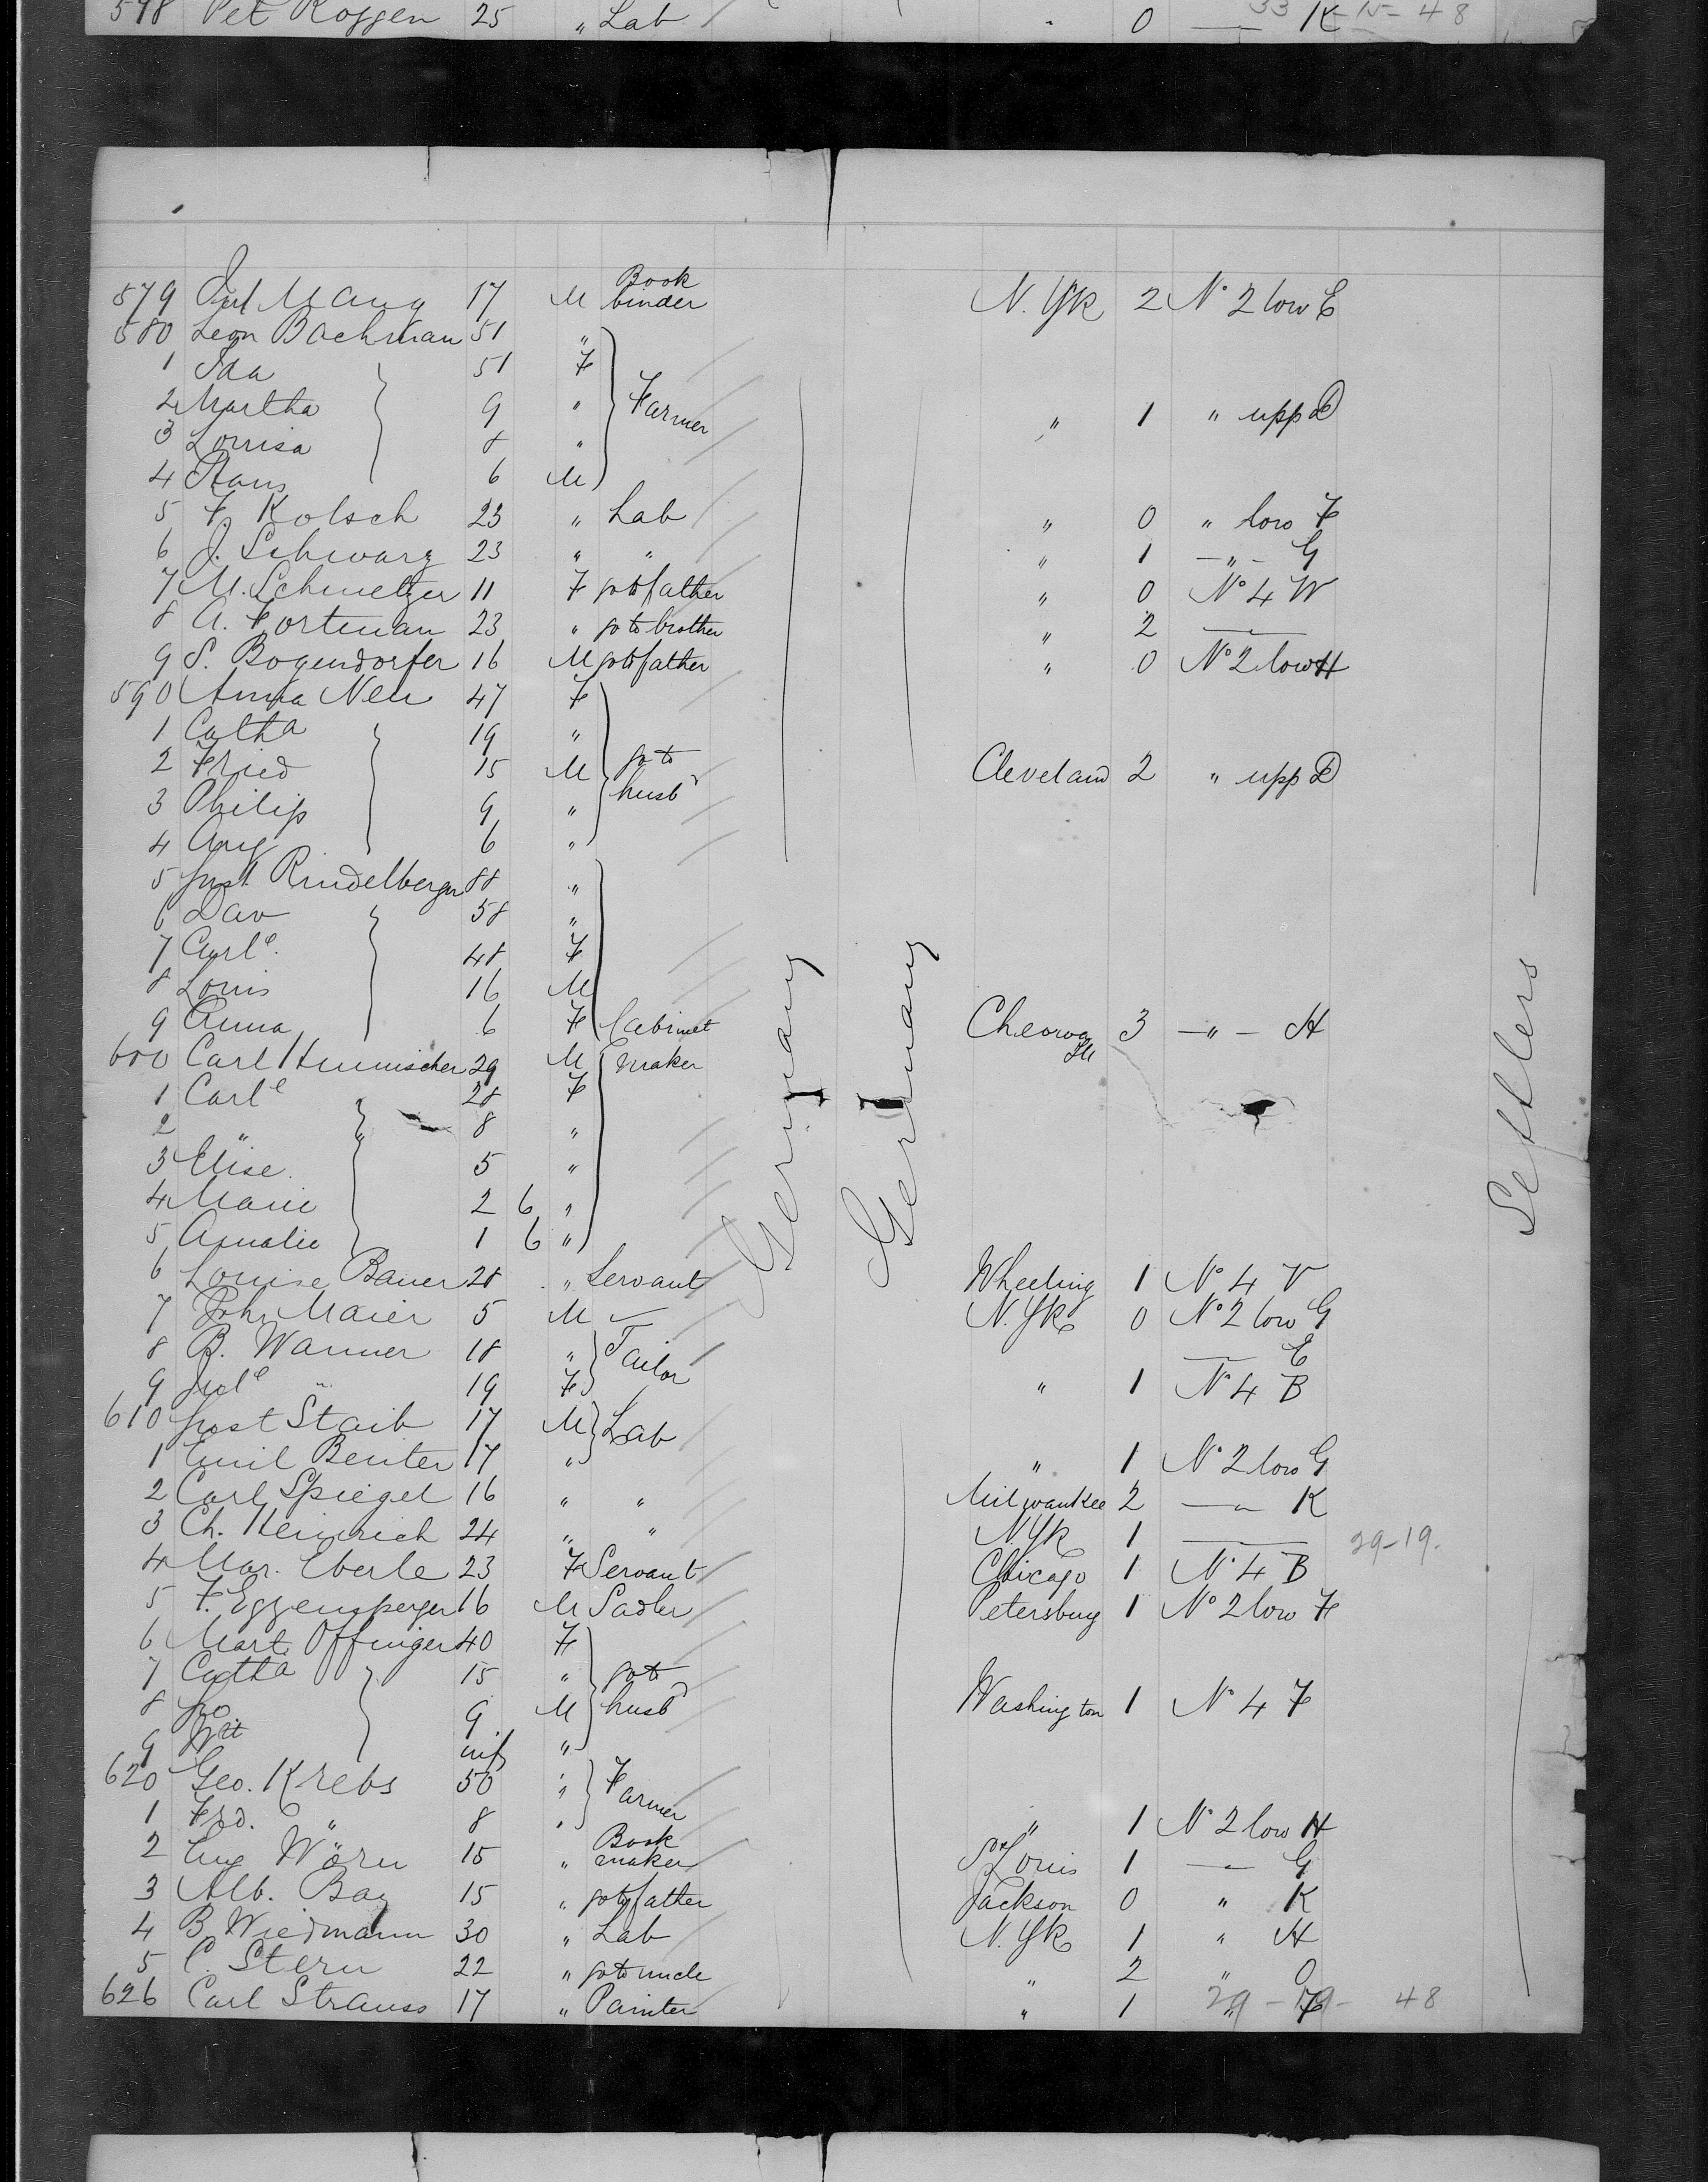 578 Pet Roggen 25 " Lab 0 — K
33 - 15 - 48
579 Jul Mang 17 M Book binder N. Yk 2 No 2 low E
580 Leon Bachman 51 "
1 Ida 51 F
2 Martha 9 " Farmer " 1 " upp D
3 Louisa 8 "
4 Hans 6 M
5 F Kolsch 23 " Lab " 0 " low F
6 J. Schwarz 23 " " " 1 — " — G
7 M. Schmelzer 11 F go to father " 0 No 4 W
8 A. Fortman 23 " go to brother " 2 —
9 S. Bogendorfer 16 M go to father " 0 No 2 low H
590 Anna Neu 47 F
1 Catha 19 "
2 Fried 15 M go to husbd Cleveland 2 " upp D
3 Philip 9 "
4 Aug 6 "
5 Just Rindelberger 88 "
6 Dav 58 "
7 Carle 48 F
8 Louis 16 M
9 Anna 6 F Cabinet Cheowa Ill 3 — " — H
600 Carl 29 M maker
1 Carle 28 F
2 " 8 "
3 Elise 5 "
4 Marie 2 6 "
5 Amalie 1 6 "
6 Louise Bauer 28 " Servant Wheeling 1 No 4 V
7 Joh. Maier 5 M N. Yk 0 No 2 low G
8 B. Wanner 18 " Tailor — E
9 Jule " 19 F " 1 No 4 B
610 Jost Staib 17 M Lab
1 Emil Benter 17 " " 1 No 2 low G
2 Carl Spiegel 16 " " Milwaukee 2 — " K
3 Ch. Heinrich 24 " " N. Yk 1 — 29-19.
4 Mar. Eberle 23 F Servant Chicago 1 No 4 B
5 F. Eggensperger 16 M Sadler Petersburg 1 No 2 low F
6 Mart Offinger 40 F
7 Catha 15 " go to
8 Jo 9 M husbd Washington 1 No 4 F
9 inf "
620 Geo. Krebs 50 " Farmer
1 Frd. " 8 " " 1 No 2 low H
2 Eug Wörn 15 " Book maker St Louis 1 — G
3 Alb. Bay 15 " go to father Jackson 0 " K
4 B Wiedmann 30 " Lab N. Yk 1 " H
5 C. Stern 22 " go to uncle " 2 "
626 Carl Strauss 17 " Painter " 1 " F
29 - 19 - 48
Germany
Germany
Settlers